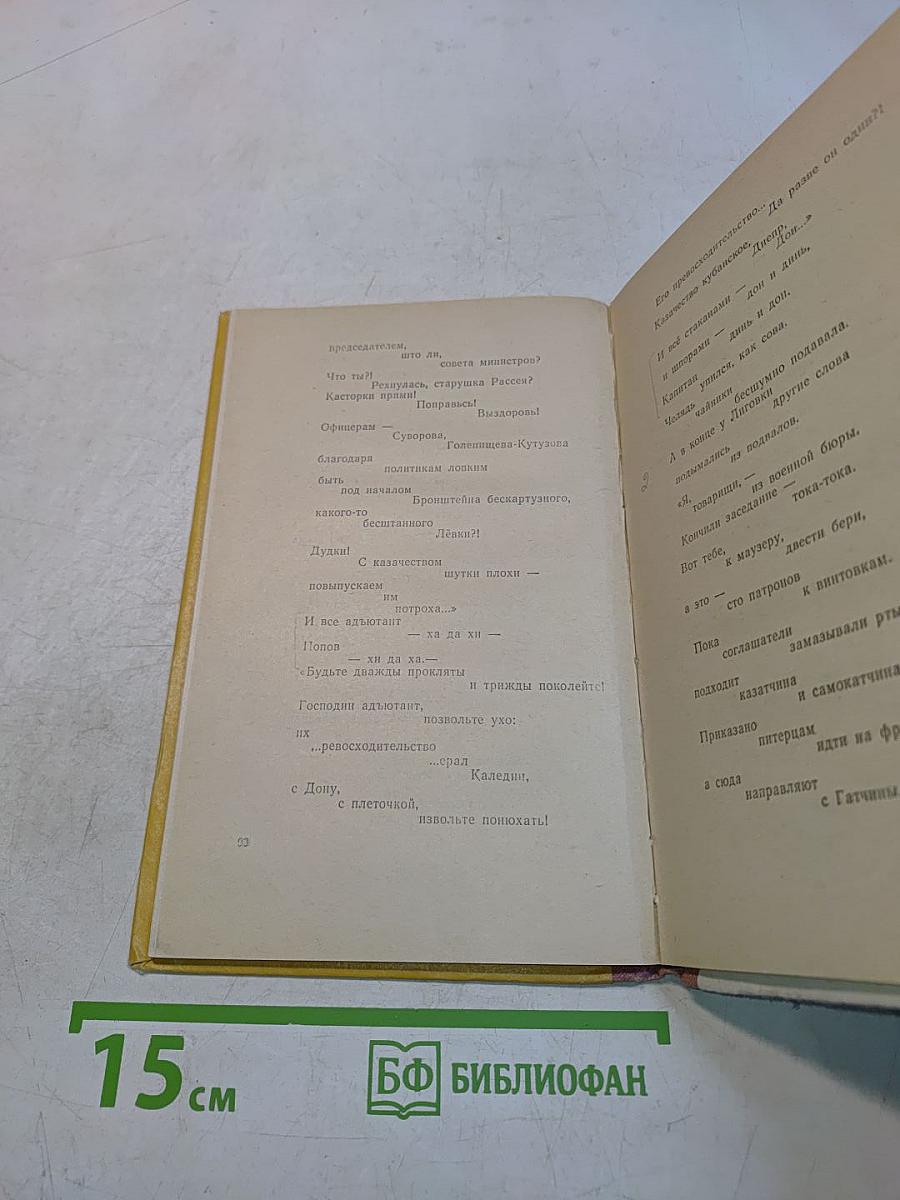 председателем,
што ли,
совета министров?
Что ты?!
Рехнулась, старушка Рассея?
Касторки прими!
Поправьсь!
Выздоровь!
Офицерам —
Суворова,
Голенищева-Кутузова
благодаря
политикам ловким
быть
под началом
Бронштейна бескартузного,
какого-то
бесштанного
Лёвки?!
Дудки!
С казачеством
шутки плохи —
повыпускаем
им
потроха...»
И все адъютант
— ха да хи —
Попов
— хи да ха.—
«Будьте дважды прокляты
и трижды поколейте!
Господин адъютант,
позвольте ухо:
их
...ревосходительство
...ерал
Каледин,
с Дону,
с плеточкой,
извольте понюхать!
93
Его превосходительство...
Да разве он один?!
Казачество кубанское,
Днепр,
Дон...»
И всё стаканами —
дон и динь,
и шпорами —
динь и дон.
Капитан
упился, как сова.
Челядь
чайники
бесшумно подавала.
А в конце у Лиговки
другие слова
подымались
из подвалов.
«Я,
товарищи, —
из военной бюры.
Кончили заседание —
тока-тока.
Вот тебе,
к маузеру,
двести бери,
а это —
сто патронов
к винтовкам.
Пока
соглашатели
замазывали рты
подходит
казатчина
и самокатчина
Приказано
питерцам
идти на фр
а сюда
направляют
с Гатчины
15 см
БФ БИБЛИОФАН